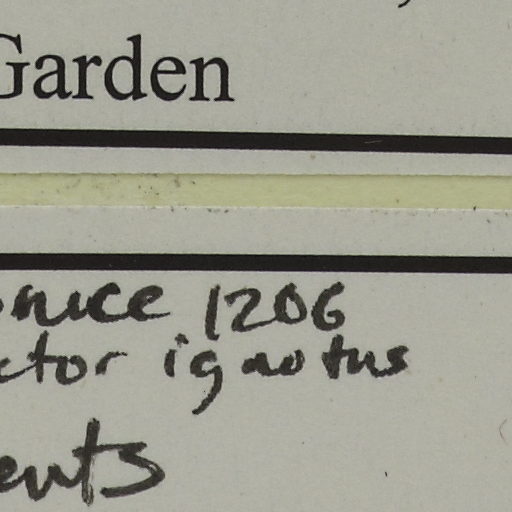 Garden
onice 1206
ctor ignotus
ents